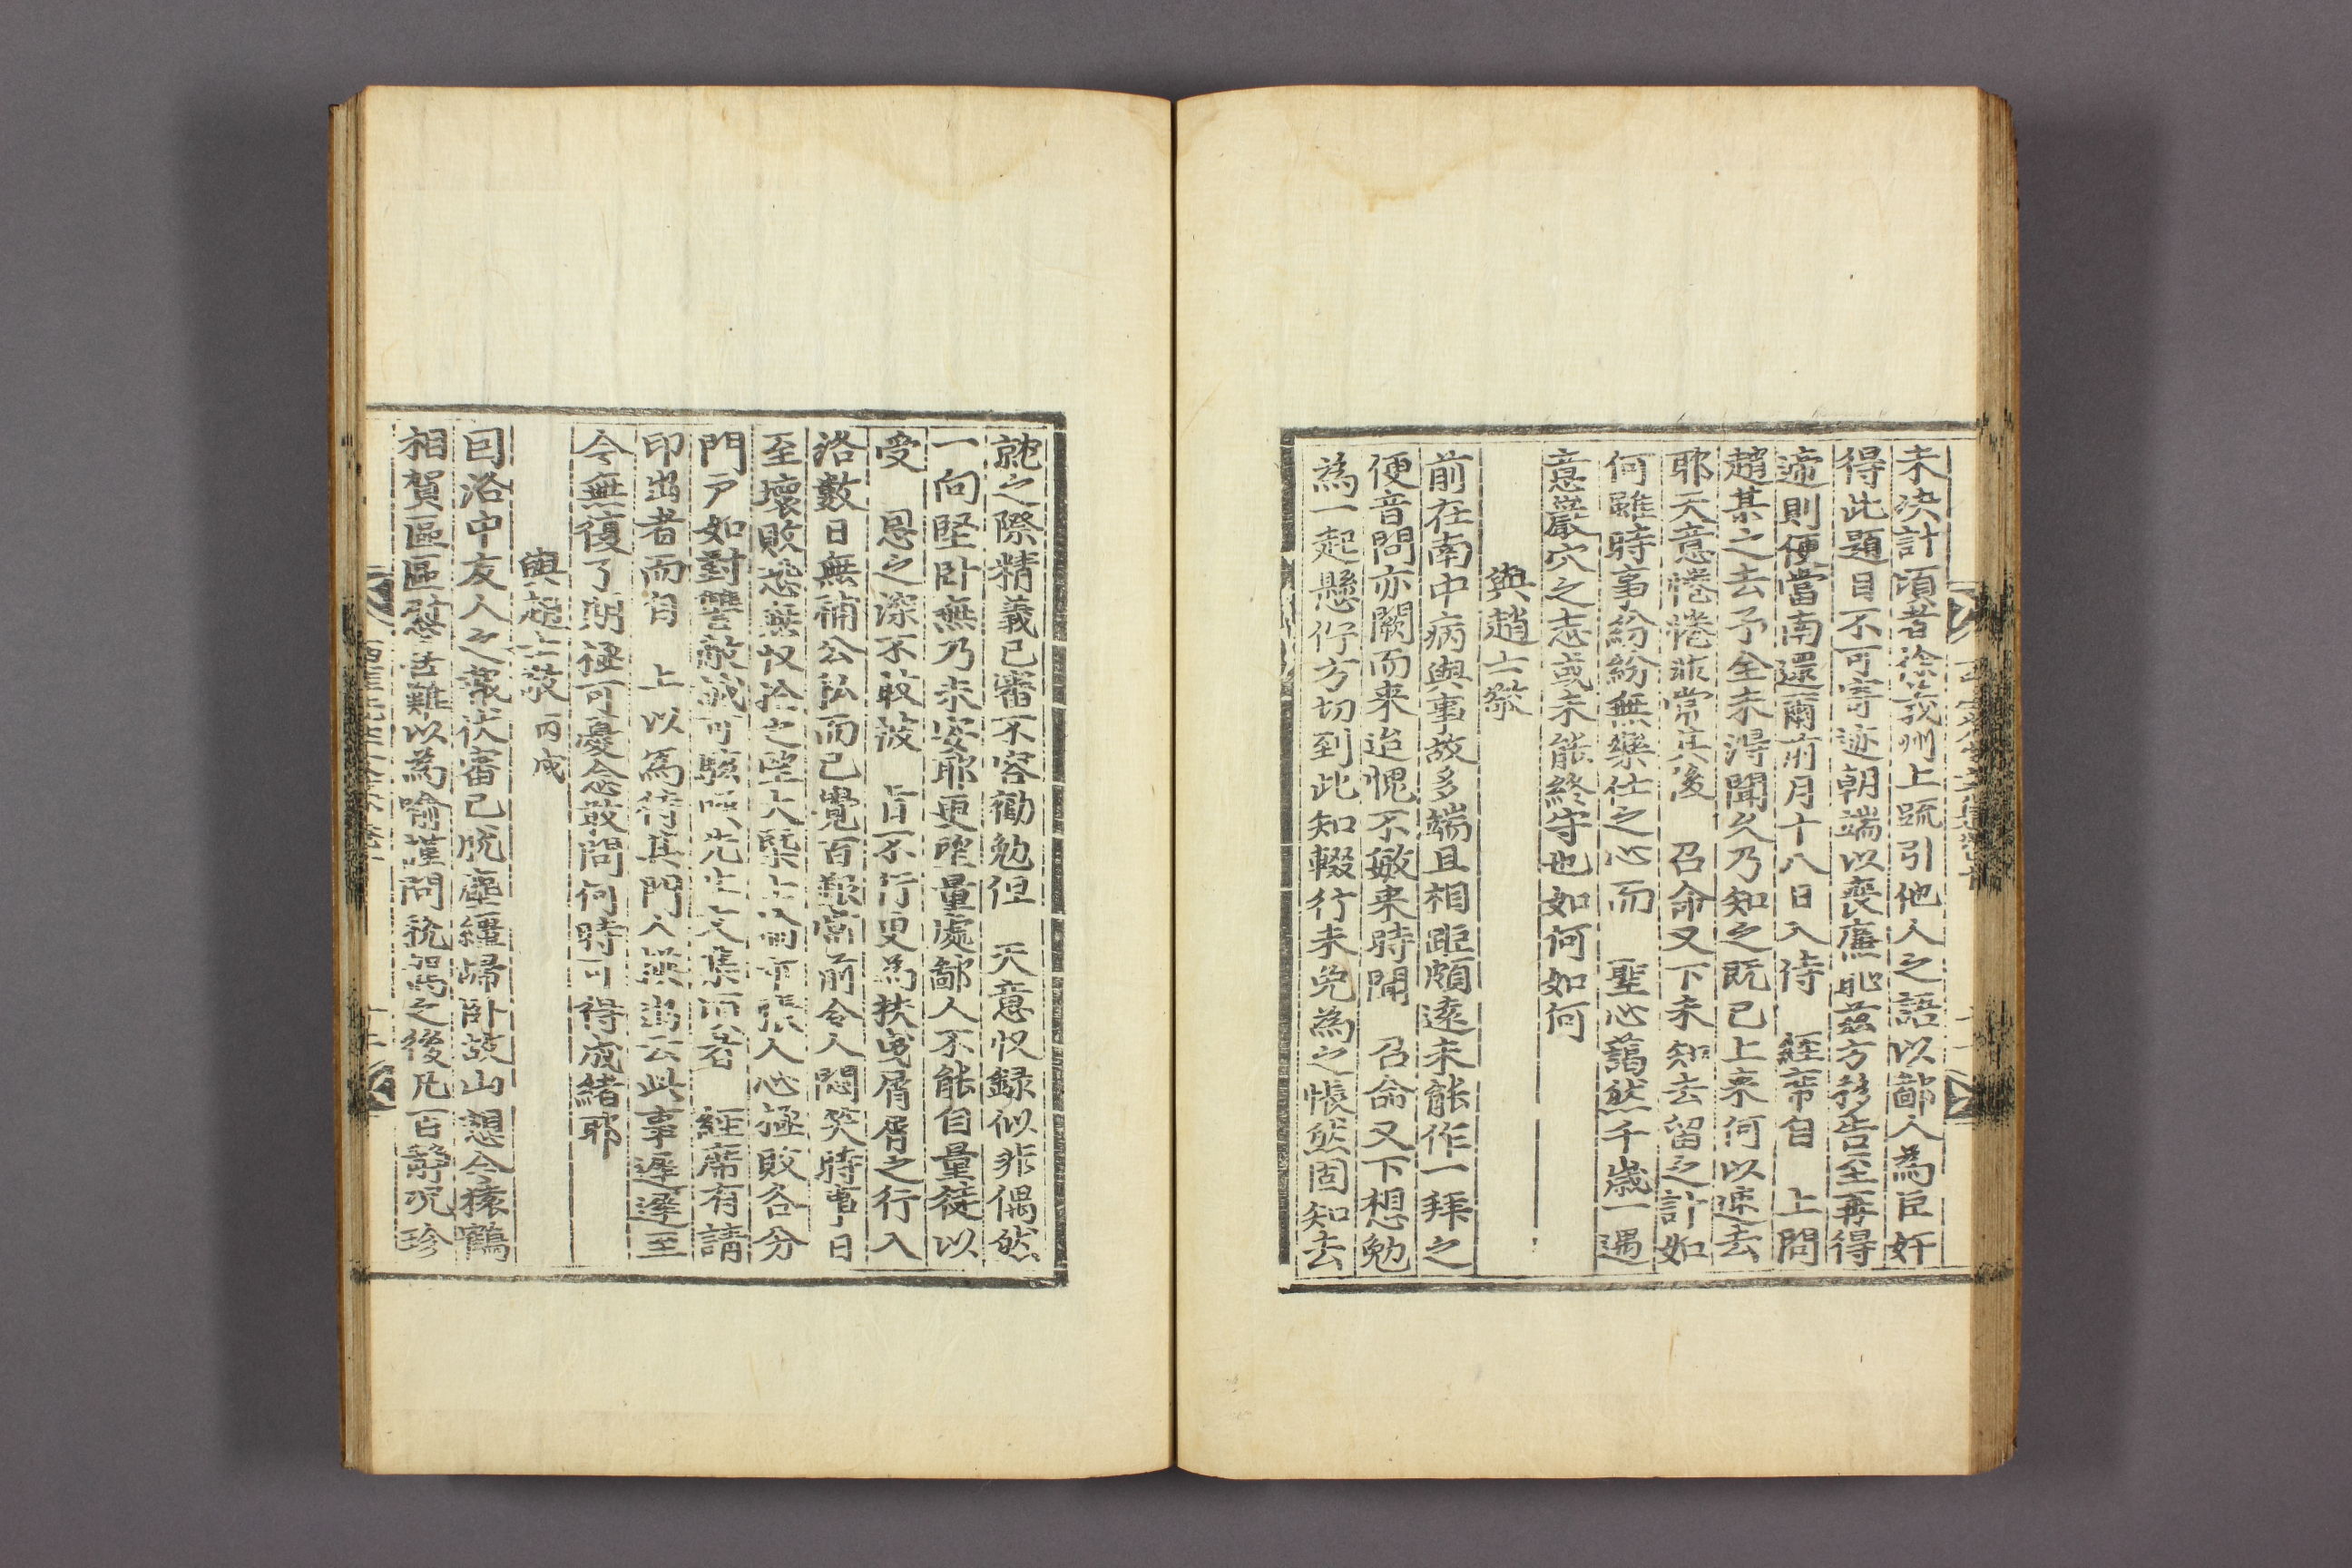 未決計頃者徐義州上疏引他人之語以鄙人為臣奸
得此題目不可寄迹朝端以喪廉恥玆方移告至再得
遞則便當南還爾前月十八日入侍　經帝自　上問
趙某之去予全未得聞久乃知之既已上來何以速去
耶天意惓惓非常其後　召命又下未知去留之計如
何雖時事紛紛無樂仕之心而　聖心藹然千歲一遇
意巖穴之志或未能終守也如何如何
與趙士敬
前在南中病與事故多端且相距頗遠未能作一拜之
便音問亦闕而来迨愧不敏来時聞　召命又下想勉
為一起懸佇方切到此知輟行未免為之悵然固知去
就之際精義已審不容勸勉但　天意收録似非偶然
一向堅卧無乃未安耶更望量處鄙人不能自量徒以
受　恩之深不敢被　旨不行更為扶曳屑屑之行入
洛數日無補公私而已覺百艱當前令人悶笑時事日
至壞敗恐無收拾之望大槩士論乖張人心極敗各分
門戶如對讐敵誠可駭嘆先生文集頃者　經席有請
印出者而自　上以為待其門人撰出云此事遲遲至
今無復了期極可憂念敢問何時可得成緒耶
與趙士敬丙戌
回洛中友人之幸伏審已脫塵韁歸卧故山想令猿鶴
相賀區區慰喜難以為喻謹問稅駕之後凡百靜況珍